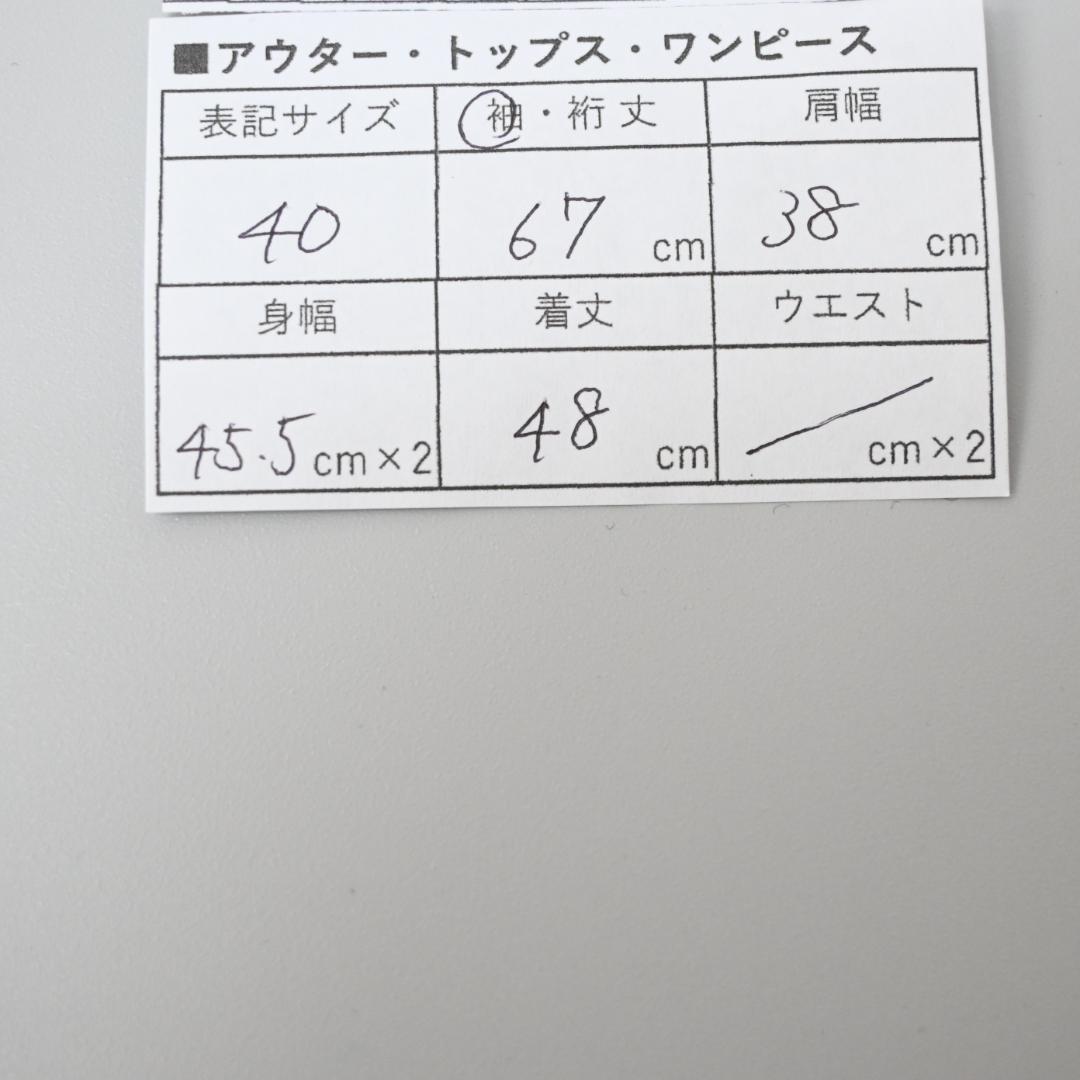 ■アウター・トップス・ワンピース
表記サイズ 袖・裄丈 肩幅
40 67 cm 38 cm
身幅 着丈 ウエスト
45.5 cm×2 48 cm cm×2